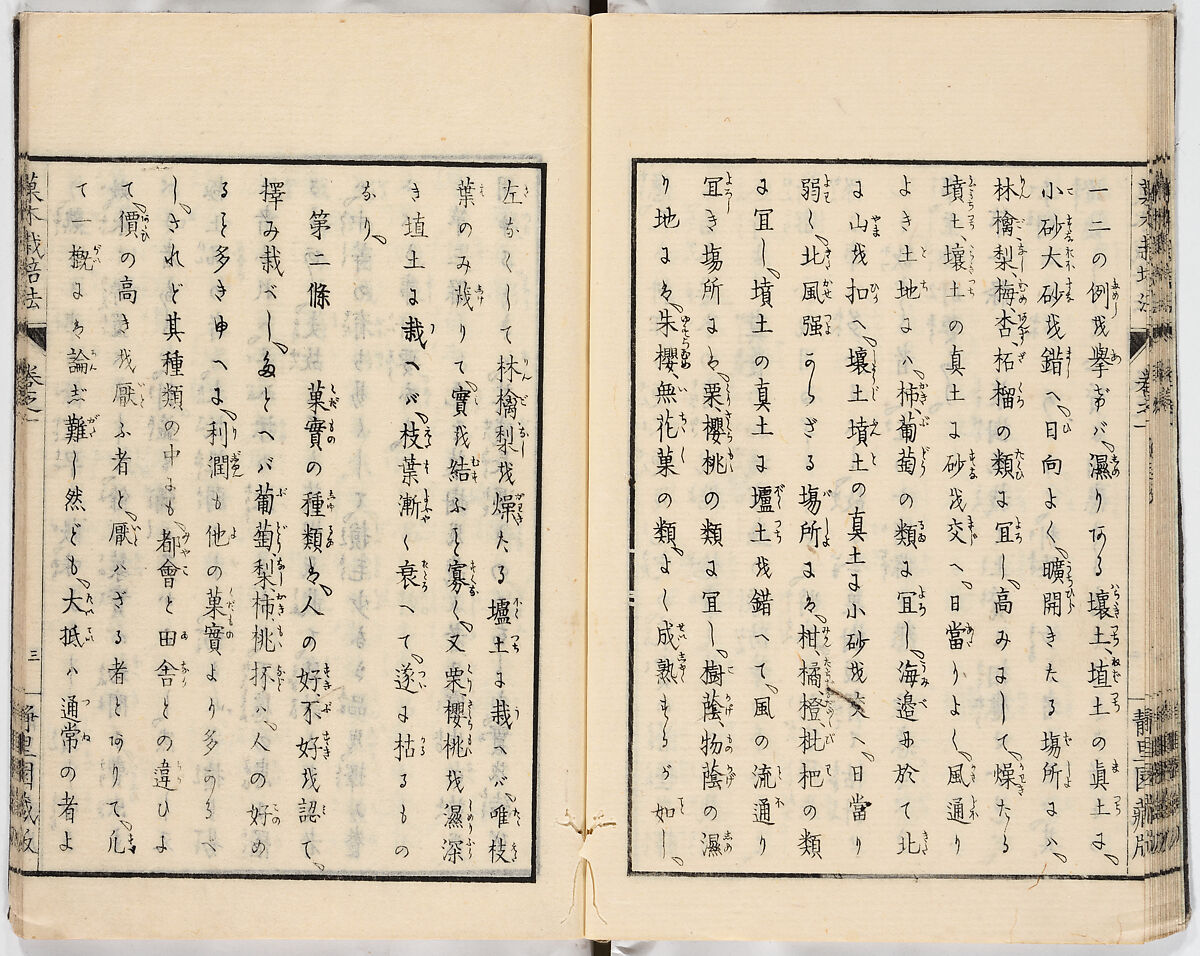 一二の例を擧れバ、濕りある壤土、埴土の眞土に、
小砂大砂を錯へ、日向よく、曠開きたる塲所ハ、
林檎、梨、梅、杏、柘榴の類に宜し、高みにして、燥たる
墳土壤土の真土に砂を交へ、日當りよく、風通り
よき土地ハ、柿、葡萄の類に宜し、海邉に於て北
に山を扣へ、壤土墳土の真土に小砂を交へ、日當り
弱く、北風强からざる塲所に、柑、橘、橙、枇杷の類
に宜し、墳土の真土に壚土を錯へて、風の流通り
宜き塲所に、栗、櫻桃の類に宜し、樹蔭、物蔭の濕
り地に、朱櫻、無花菓の類、よく成熟するが如し、
左なくして林檎梨を燥たる壚土に栽へバ、唯枝
葉のみ茂りて、實を結ふこと寡く、又栗、櫻桃を濕深
き埴土に栽へバ、枝葉漸く衰へて、遂に枯るもの
なり、
第二條 菓實の種類ハ、人の好、不好を認て、
擇み栽べし、たとへバ葡萄、梨、柿、桃抔ハ、人の好め
ること多きゆへに、利潤も他の菓實より多かるべ
し、されど其種類の中にも、都會と田舎との違ひよ
て、價の高きを厭ふ者と、厭ハざる者とありて、凡
て一概にハ論じ難し然ども、大抵ハ通常の者よ
菓木栽培法 卷之一 三 靜里園藏版